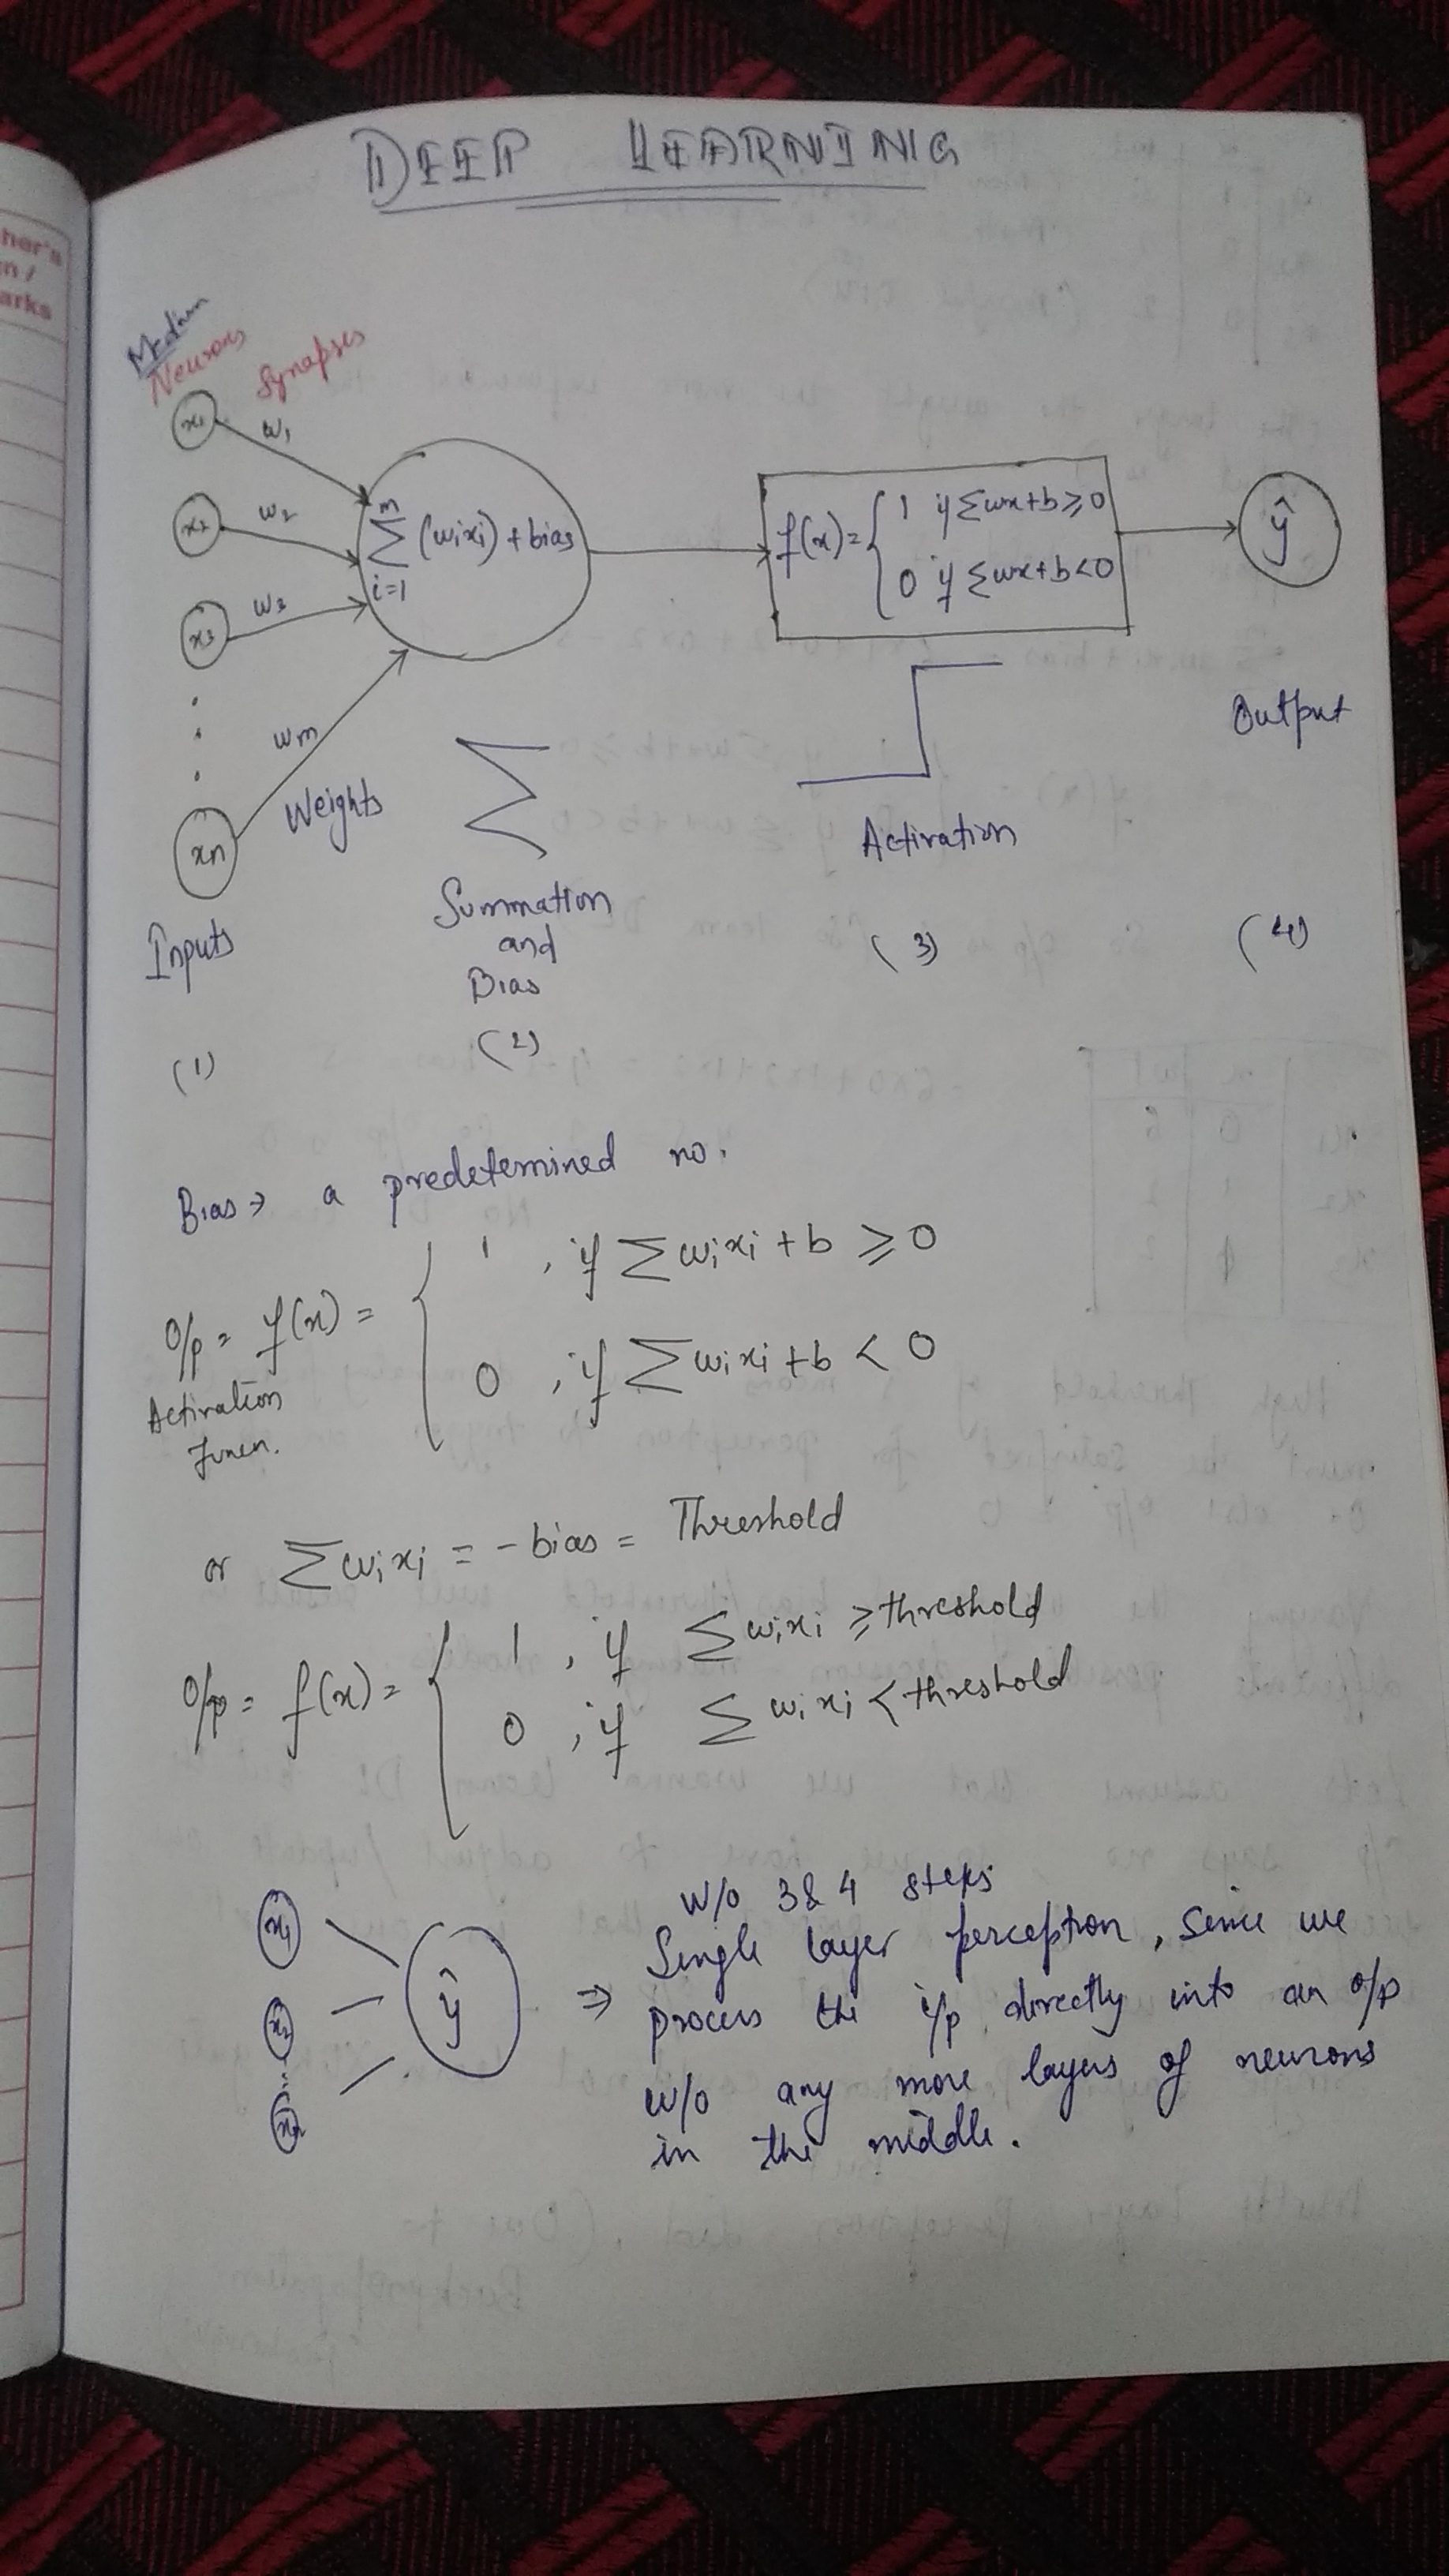 DEEP LEARNING
her's
n/
arks
Neurons
Synapses
x1
w1
x2
w2
x3
w3
wm
xn
Weights
Inputs
(1)
m
∑ (wixi) + bias
i=1
∑
Summation
and
Bias
(2)
f(x) = { 1 if ∑wx+b ≥ 0
0 if ∑wx+b < 0
Activation
(3)
ŷ
Output
(4)
Bias → a predetermined no.
O/p = f(x) = { 1 , if ∑ wixi + b ≥ 0
0 , if ∑ wixi + b < 0
Activation
Funcn.
or ∑ wixi = - bias = Threshold
O/p = f(x) = { 1 , if ∑ wixi ≥ threshold
0 , if ∑ wixi < threshold
x1
x2
ŷ
⇒
W/o 3 & 4 steps
Single layer perceptron, since we
process the i/p directly into an o/p
w/o any more layers of neurons
in the middle.